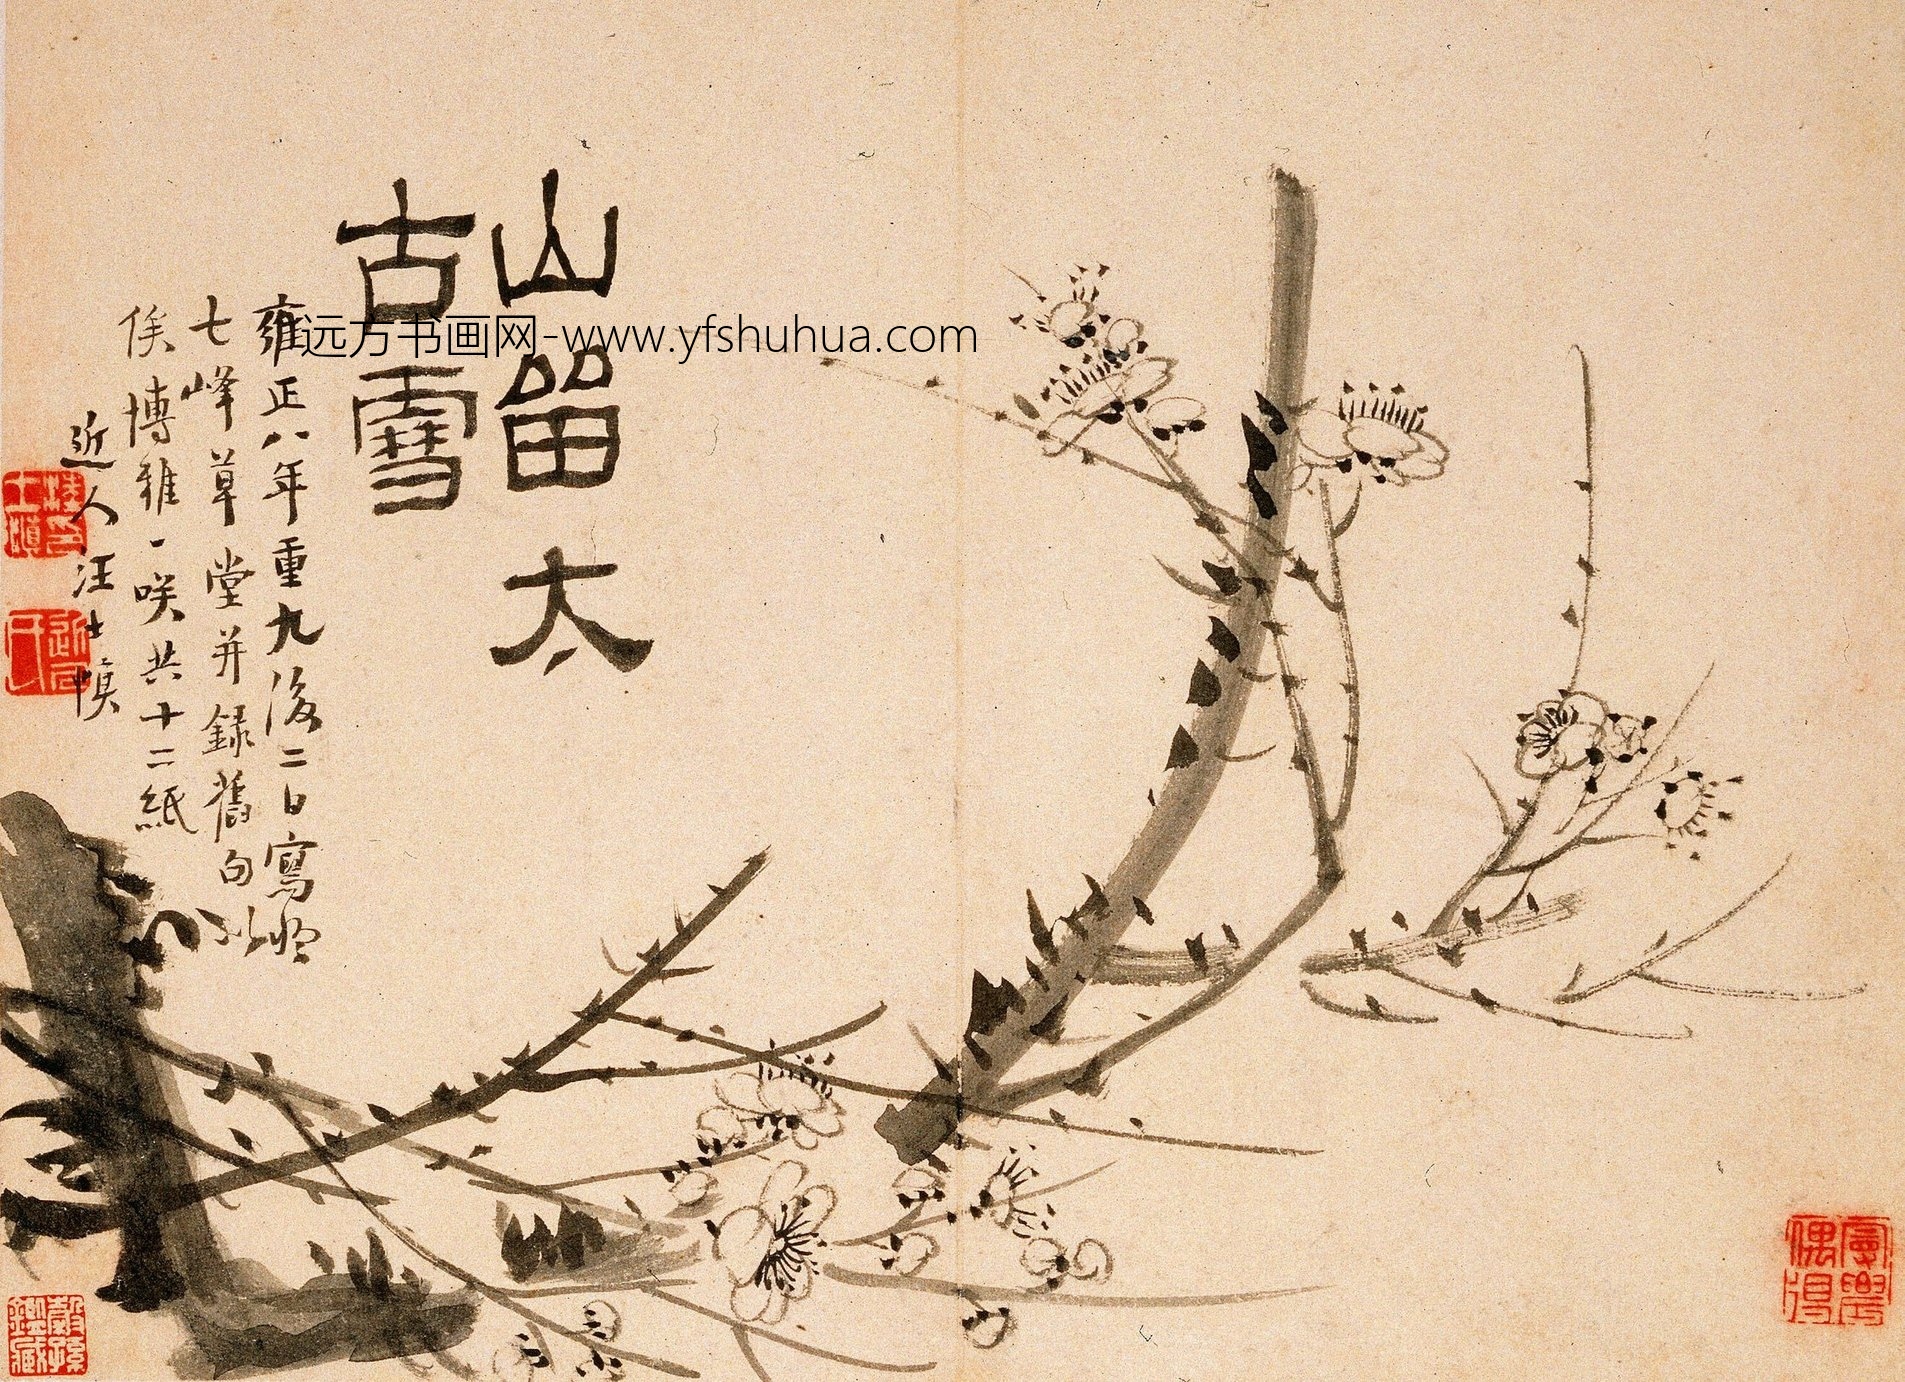 山留太
古雪
雍正八年重九後二日寫於
七峰草堂并録舊句以
俟博雅一咲共十二紙
近人汪士慎
穀孫鑑藏
远方书画网-www.yfshuhua.com